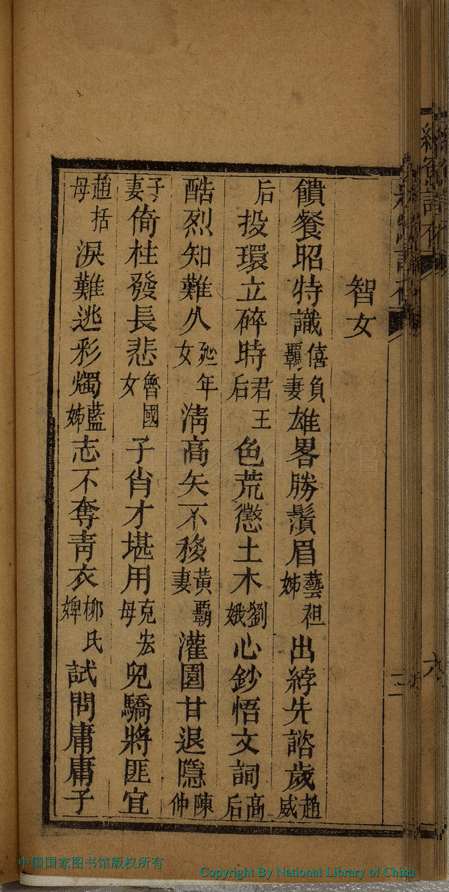 智女
饋餐昭特識僖負羈妻雄畧勝鬚眉藝祖姊出綍先諮歲趙威
后投環立碎時君王后色荒懲土木劉娥心鈔悟文詞高后
酷烈知難久延年女清高矢不移黃霸妻灌園甘退隱陳仲
子妻倚柱發長悲魯國女子肖才堪用克宏母兒驕將匪宜
趙括母淚難逃彩燭藍姊志不奪青衣柳氏婢試問庸庸子
中国国家图书馆版权所有
Copyright By National Library of China